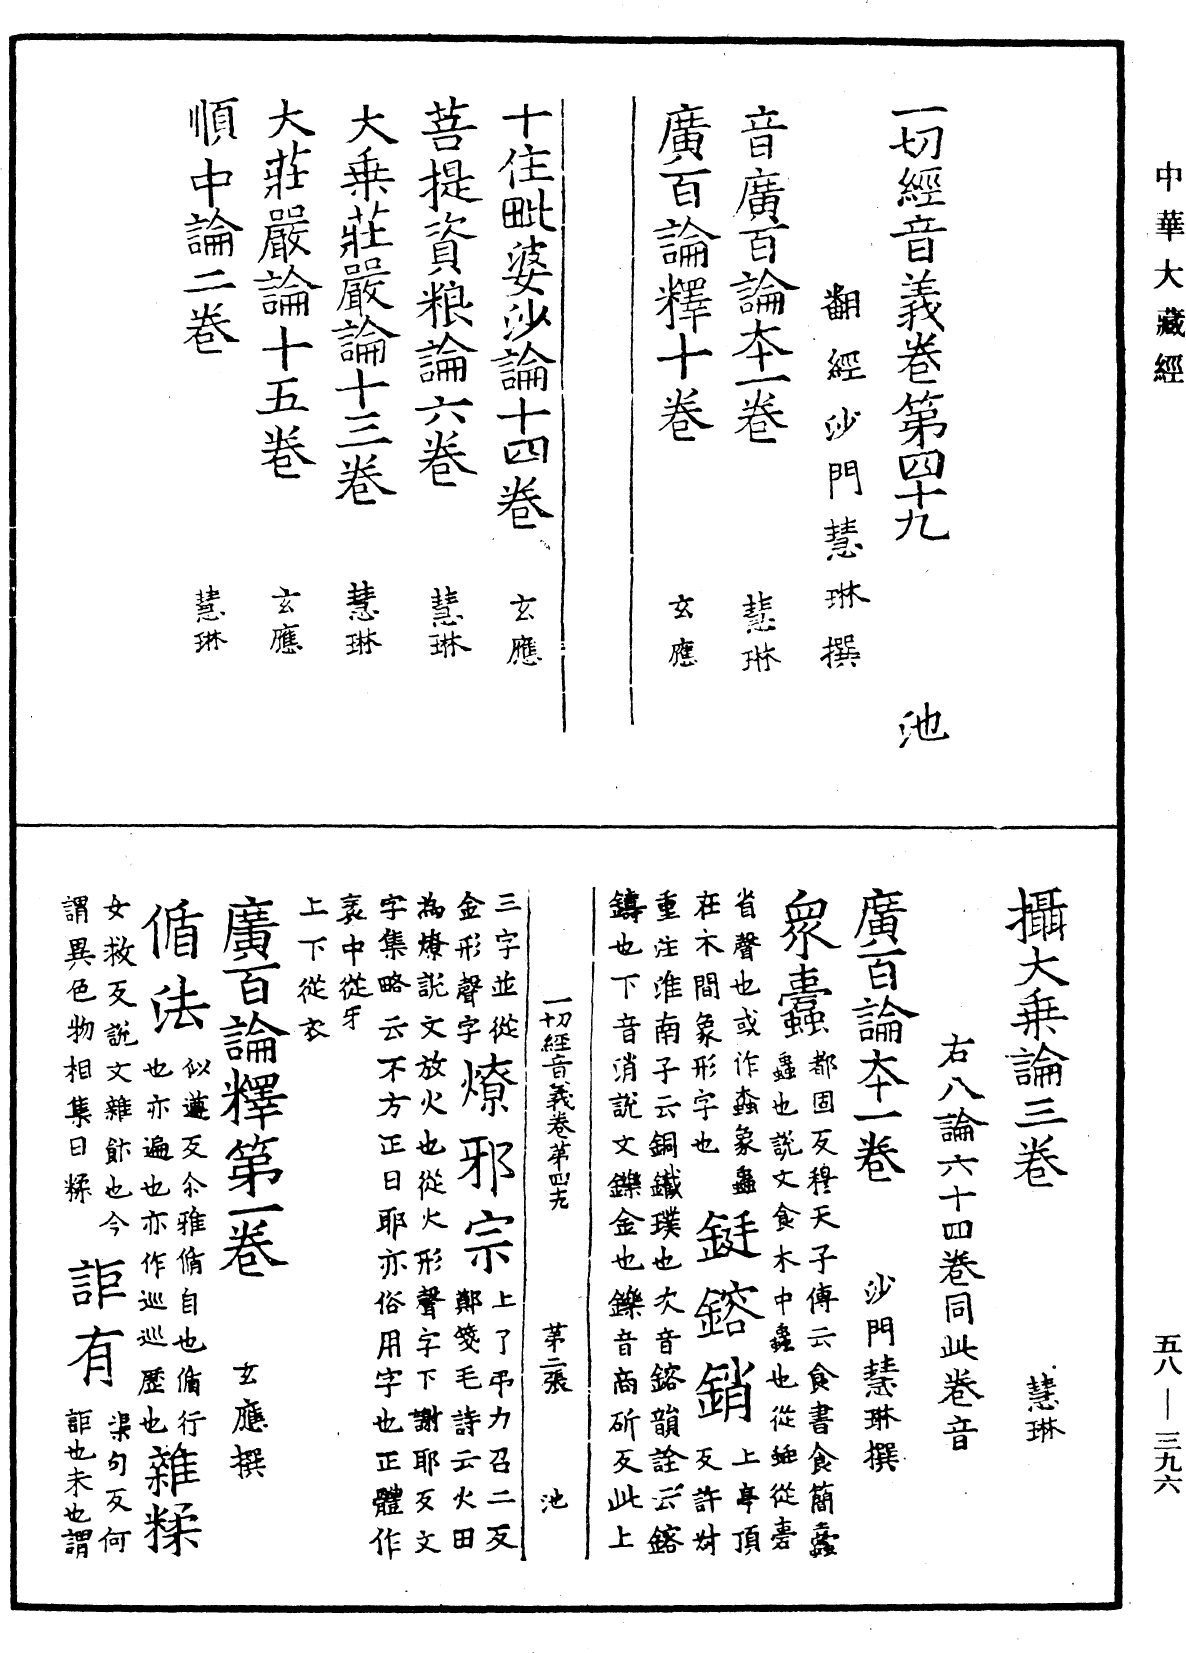 中華大藏經
一切經音義卷第四十九 池
翻經沙門慧琳撰
音廣百論本一卷 慧琳
廣百論釋十卷 玄應
十住毗婆沙論十四卷 玄應
菩提資粮論六卷 慧琳
大乗莊嚴論十三卷 慧琳
大莊嚴論十五卷 玄應
順中論二卷 慧琳
攝大乗論三卷 慧琳
右八論六十四卷同此卷音
廣百論本一卷 沙門慧琳撰
眾蠹 都固反穆天子傳云食書食簡蠹
蟲也說文食木中蟲也從䖵從橐
省聲也或作螙象蟲
在木間象形字也 鋌鎔銷 上亭頂
反許叔
重注淮南子云銅鐵璞也次音鎔韻詮云鎔
鑄也下音消說文鑠金也鑠音商斫反此上
一切經音義卷第四九 第二張 池
三字並從
金形聲字 燎邪宗 上了弔力召二反
鄭箋毛詩云火田
為燎說文放火也從火形聲字下謝耶反文
字集略云不方正曰耶亦俗用字也正體作
衺中從牙
上下從衣
廣百論釋第一卷 玄應撰
循法 似遵反尒雅循自也循行
也亦遍也亦作巡巡歷也 雜糅
女救反說文雜飰也今
謂異色物相集曰糅 詎有 渠句反何
詎也未也謂
五八—三九六